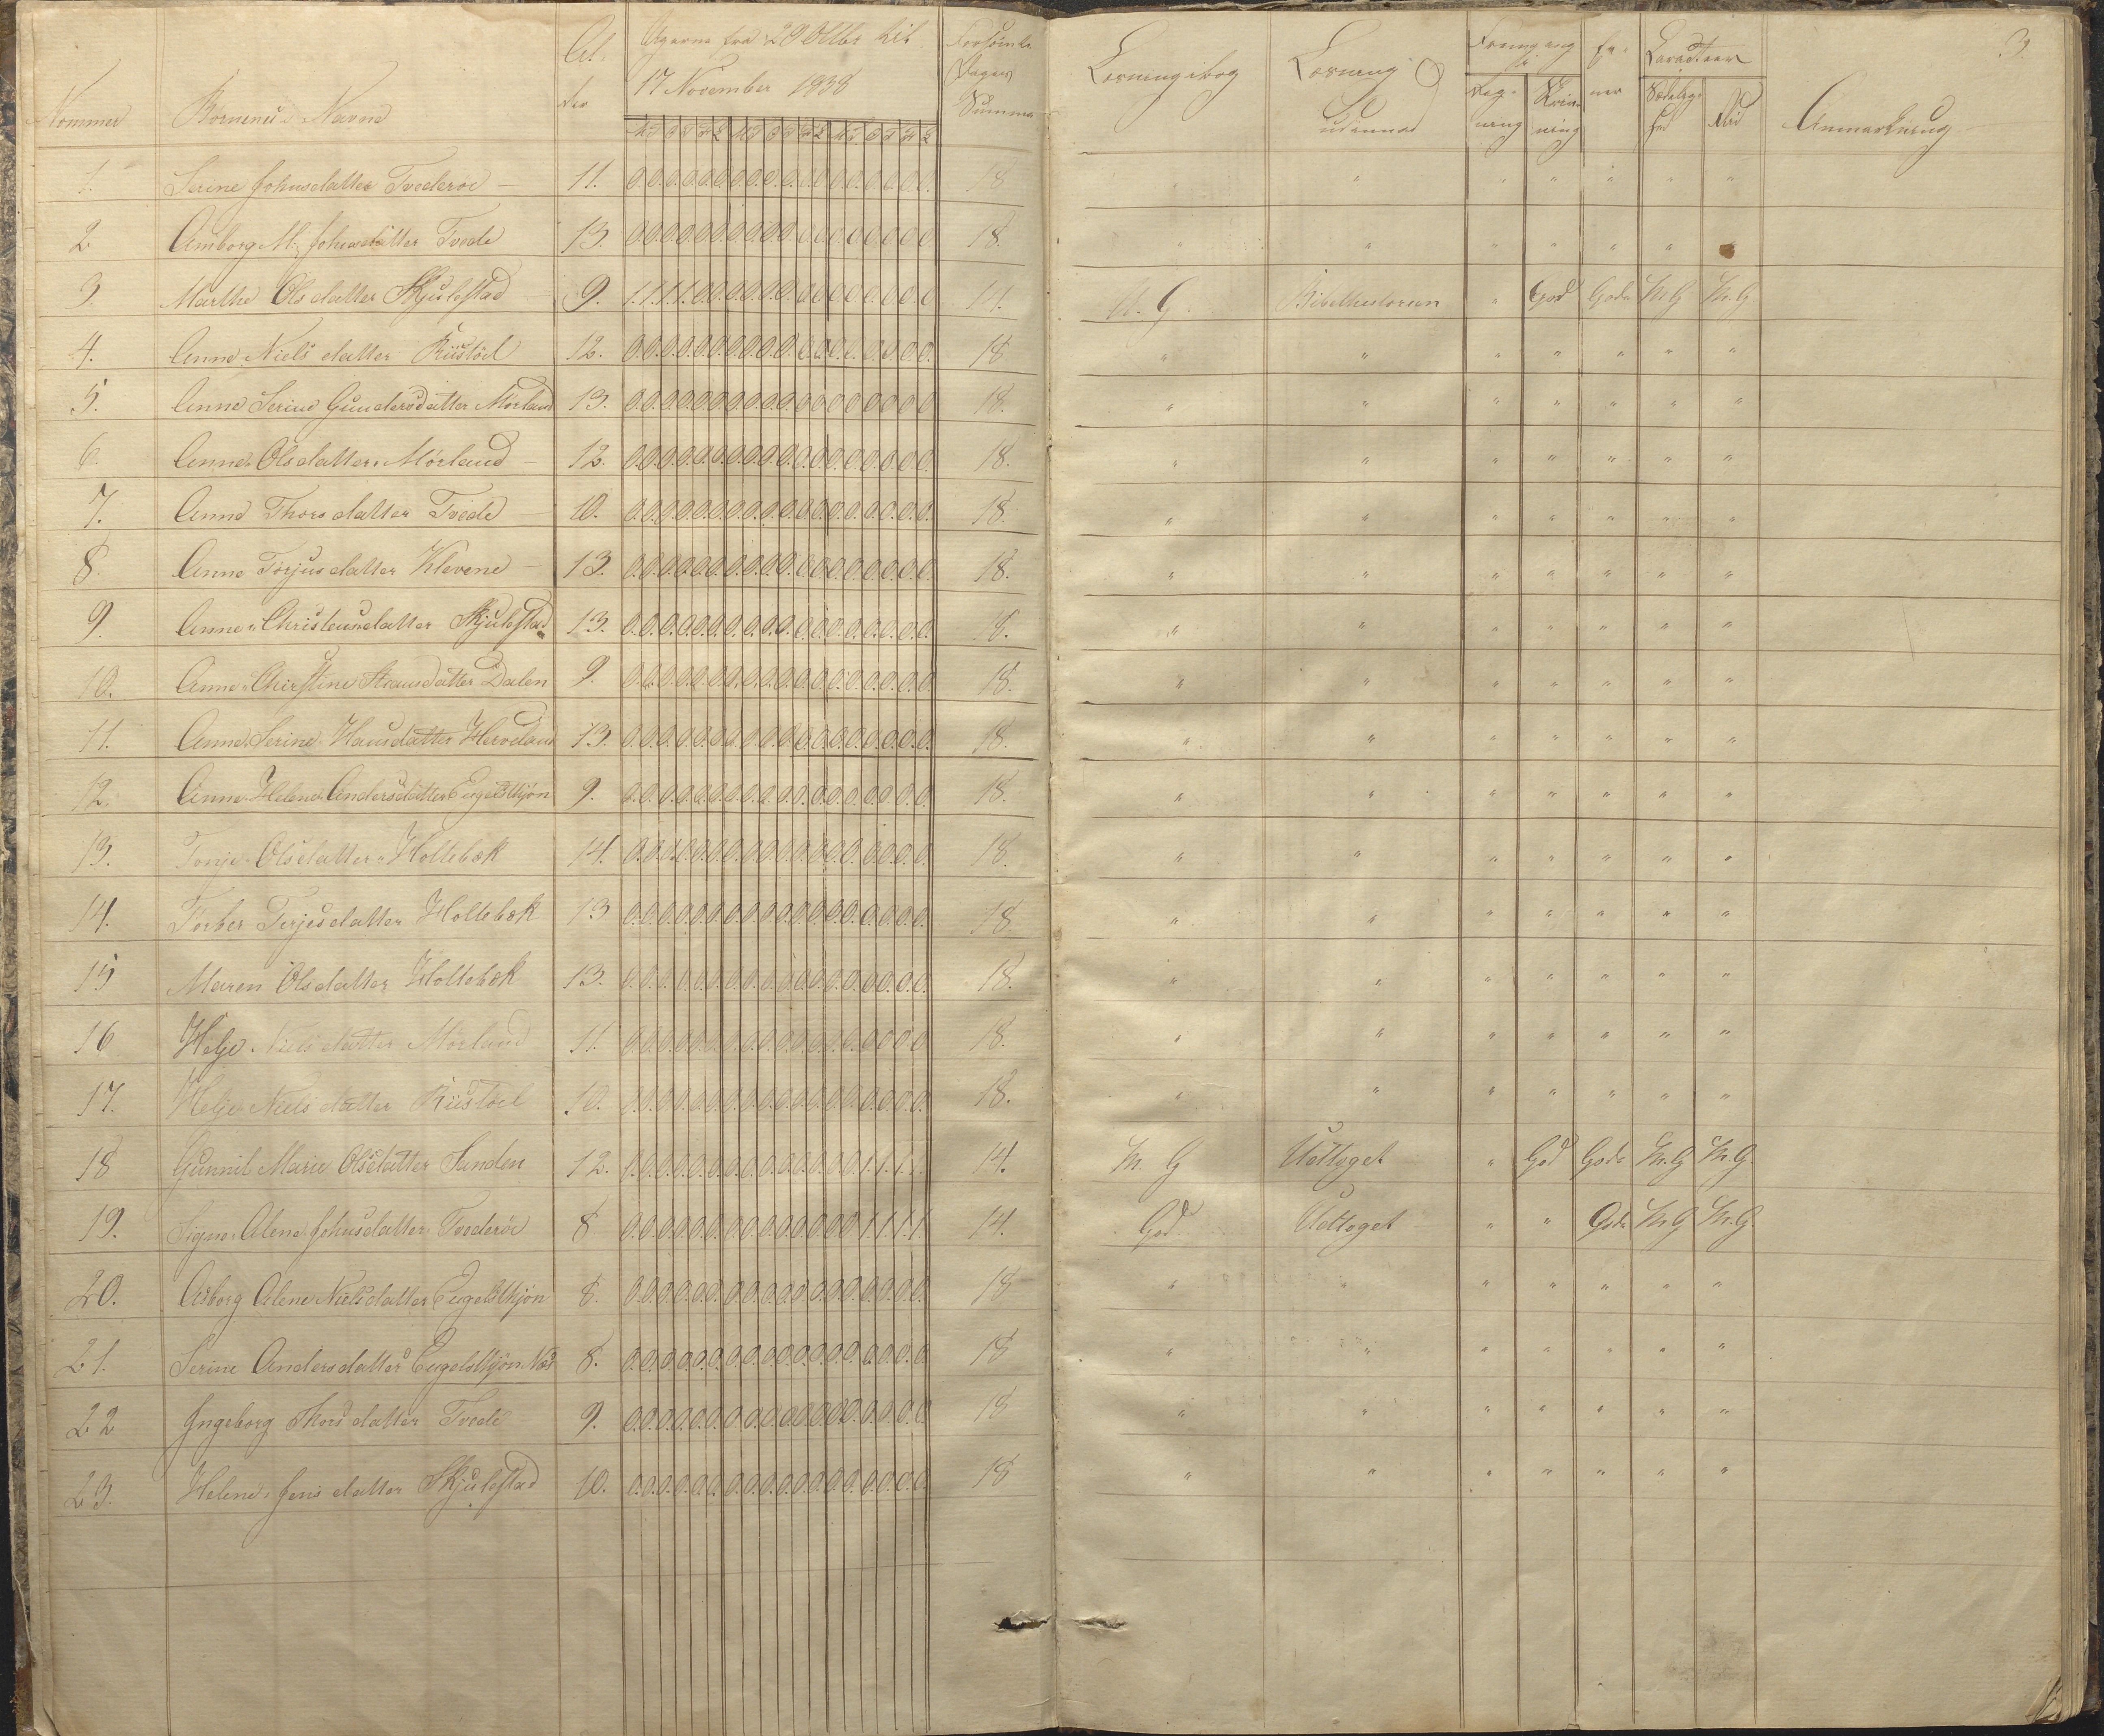 Nommer Börnenes Navne Al- der Ugerne fra 29 Octbr til 17 November 1838 Forsömte Dages Summa Læsning i bog Læsning udennad Fremgang i Reg- ning Skriv- ning Ev- ner Caracteer Sædelig- hed Flid Anmærkning 3.
M T O T F L M T O T F L M T O T F L
1. Serine Johnsdatter Tvederöe 11. 0.0.0.0.0.0.0.0.0.0.0.0.0.0.0.0.0.0. 18 " " " " " " "
2 Amborg M. Johnsdatter Tvede 13. 0.0.0.0.0.0.0.0.0.0.0.0.0.0.0.0.0.0 18. " " " " " "
3 Marthe Olsdatter Skjulestad 9. 1.1.1.1.0.0.0.0.0.0.0.0.0.0.0.0.0.0 14. M. G. Bibelhistorien " God Gode M.G M.G
4. Anne Nielsdatter Riistöel 12. 0.0.0.0.0.0.0.0.0.0.0.0.0.0.0.0.0.0. 18 " " " " " " "
5. Anne Serine Gundersdatter Mörland 13. 0.0.0.0.0.0.0.0.0.0.0.0.0.0.0.0.0.0 18. " " " " " " "
6. Anne Olsdatter Mörland 12. 0.0.0.0.0.0.0.0.0.0.0.0.0.0.0.0.0.0. 18. " " " " " " "
7. Anne Thorsdatter Tvede 10. 0.0.0.0.0.0.0.0.0.0.0.0.0.0.0.0.0.0. 18. " " " " " " "
8. Anne Torjusdatter Klevene 13. 0.0.0.0.0.0.0.0.0.0.0.0.0.0.0.0.0.0. 18. " " " " " " "
9. Anne Christensdatter Skjulestad 13. 0.0.0.0.0.0.0.0.0.0.0.0.0.0.0.0.0.0. 18. " " " " " " "
10. Anne Chirstine datter Dalen 9. 0.0.0.0.0.0.0.0.0.0.0.0.0.0.0.0.0.0. 18. " " " " " " "
11. Anne Serine Hansdatter Herveland 13. 0.0.0.0.0.0.0.0.0.0.0.0.0.0.0.0.0.0. 18. " " " " " " "
12. Anne Helene Andersdatter Engelskjön 9. 0.0.0.0.0.0.0.0.0.0.0.0.0.0.0.0.0.0. 18. " " " " " " "
13. Tonje Olsdatter Holtebæk 14. 0.0.0.0.0.0.0.0.0.0.0.0.0.0.0.0.0.0. 18. " " " " " " "
14. Torber Terjesdatter Holtebæk 13 0.0.0.0.0.0.0.0.0.0.0.0.0.0.0.0.0.0. 18 " " " " " " "
15 Maren Olsdatter Holtebæk 13. 0.0.0.0.0.0.0.0.0.0.0.0.0.0.0.0.0.0. 18. " " " " " " "
16 Helje Nielsdatter Mörland 11. 0.0.0.0.0.0.0.0.0.0.0.0.0.0.0.0.0.0 18. " " " " " " "
17. Helje Nielsdatter Riistöel 10. 0.0.0.0.0.0.0.0.0.0.0.0.0.0.0.0.0.0. 18. " " " " " " "
18 Gunnil Marie Olsdatter Sanden 12. 0.0.0.0.0.0.0.0.0.0.0.0.0.0.1.1.1.1. 14. M. G Udtoget " God Gode M.G M.G.
19. Signe Alene Johnsdatter Tvederöe 8 0.0.0.0.0.0.0.0.0.0.0.0.0.0.1.1.1.1. 14. God Udtoget " " Gode M.G M.G.
20. Asborg Alene Nielsdatter Engelskjön 8. 0.0.0.0.0.0.0.0.0.0.0.0.0.0.0.0.0.0. 18 " " " " " " "
21. Serine Andersdatter Engelskjön 8. 0.0.0.0.0.0.0.0.0.0.0.0.0.0.0.0.0.0. 18 " " " " " " "
22 Ingeborg Thorsdatter Tvede 9. 0.0.0.0.0.0.0.0.0.0.0.0.0.0.0.0.0.0 18 " " " " " " "
23. Helene Jensdatter Skjulestad 10. 0.0.0.0.0.0.0.0.0.0.0.0.0.0.0.0.0.0. 18 " " " " " " "